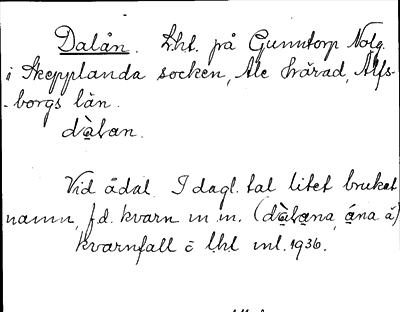 Dalån. Lht. på Gunntorp Nolg.
i Skepplanda socken, Ale härad, Älfs-
-borgs län.
dàlan.
Vid ådal. I dagl. tal litet brukat
namn, f.d. kvarn m.m. (dàlana, ána å)
kvarnfall o lht ml. 1936.